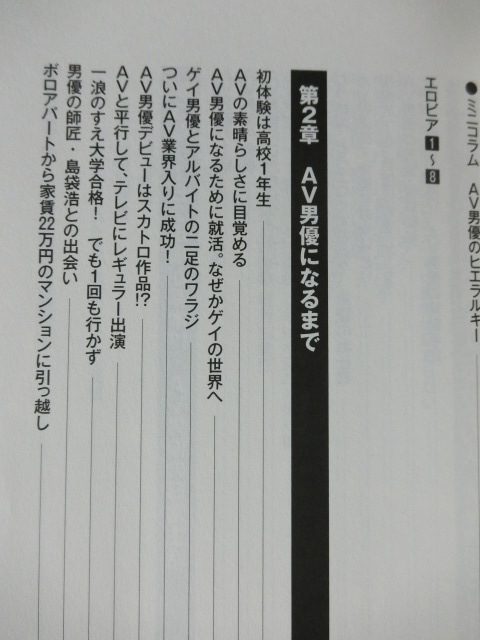 ●ミニコラム　AV男優のヒエラルキー
エロピア1〜8
第2章　AV男優になるまで
初体験は高校1年生
AVの素晴らしさに目覚める
AV男優になるために就活。なぜかゲイの世界へ
ゲイ男優とアルバイトの二足のワラジ
ついにAV業界入りに成功！
AV男優デビューはスカトロ作品!?
AVと平行して、テレビにレギュラー出演
一浪のすえ大学合格！　でも1回も行かず
男優の師匠・島袋浩との出会い
ボロアパートから家賃22万円のマンションに引っ越し